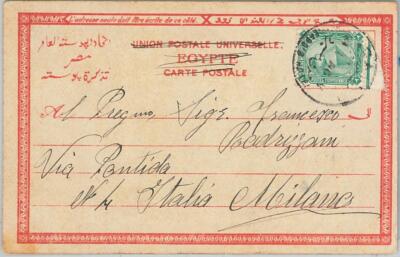 L'adresse seule doit être écrite de ce côté.
اتحاد البوسته العام
مصر
تذكرة بوسته
UNION POSTALE UNIVERSELLE.
EGYPTE
CARTE POSTALE
Al Pregmo Sigr Francesco
Via Pontida
Nº 4 Italia Milano